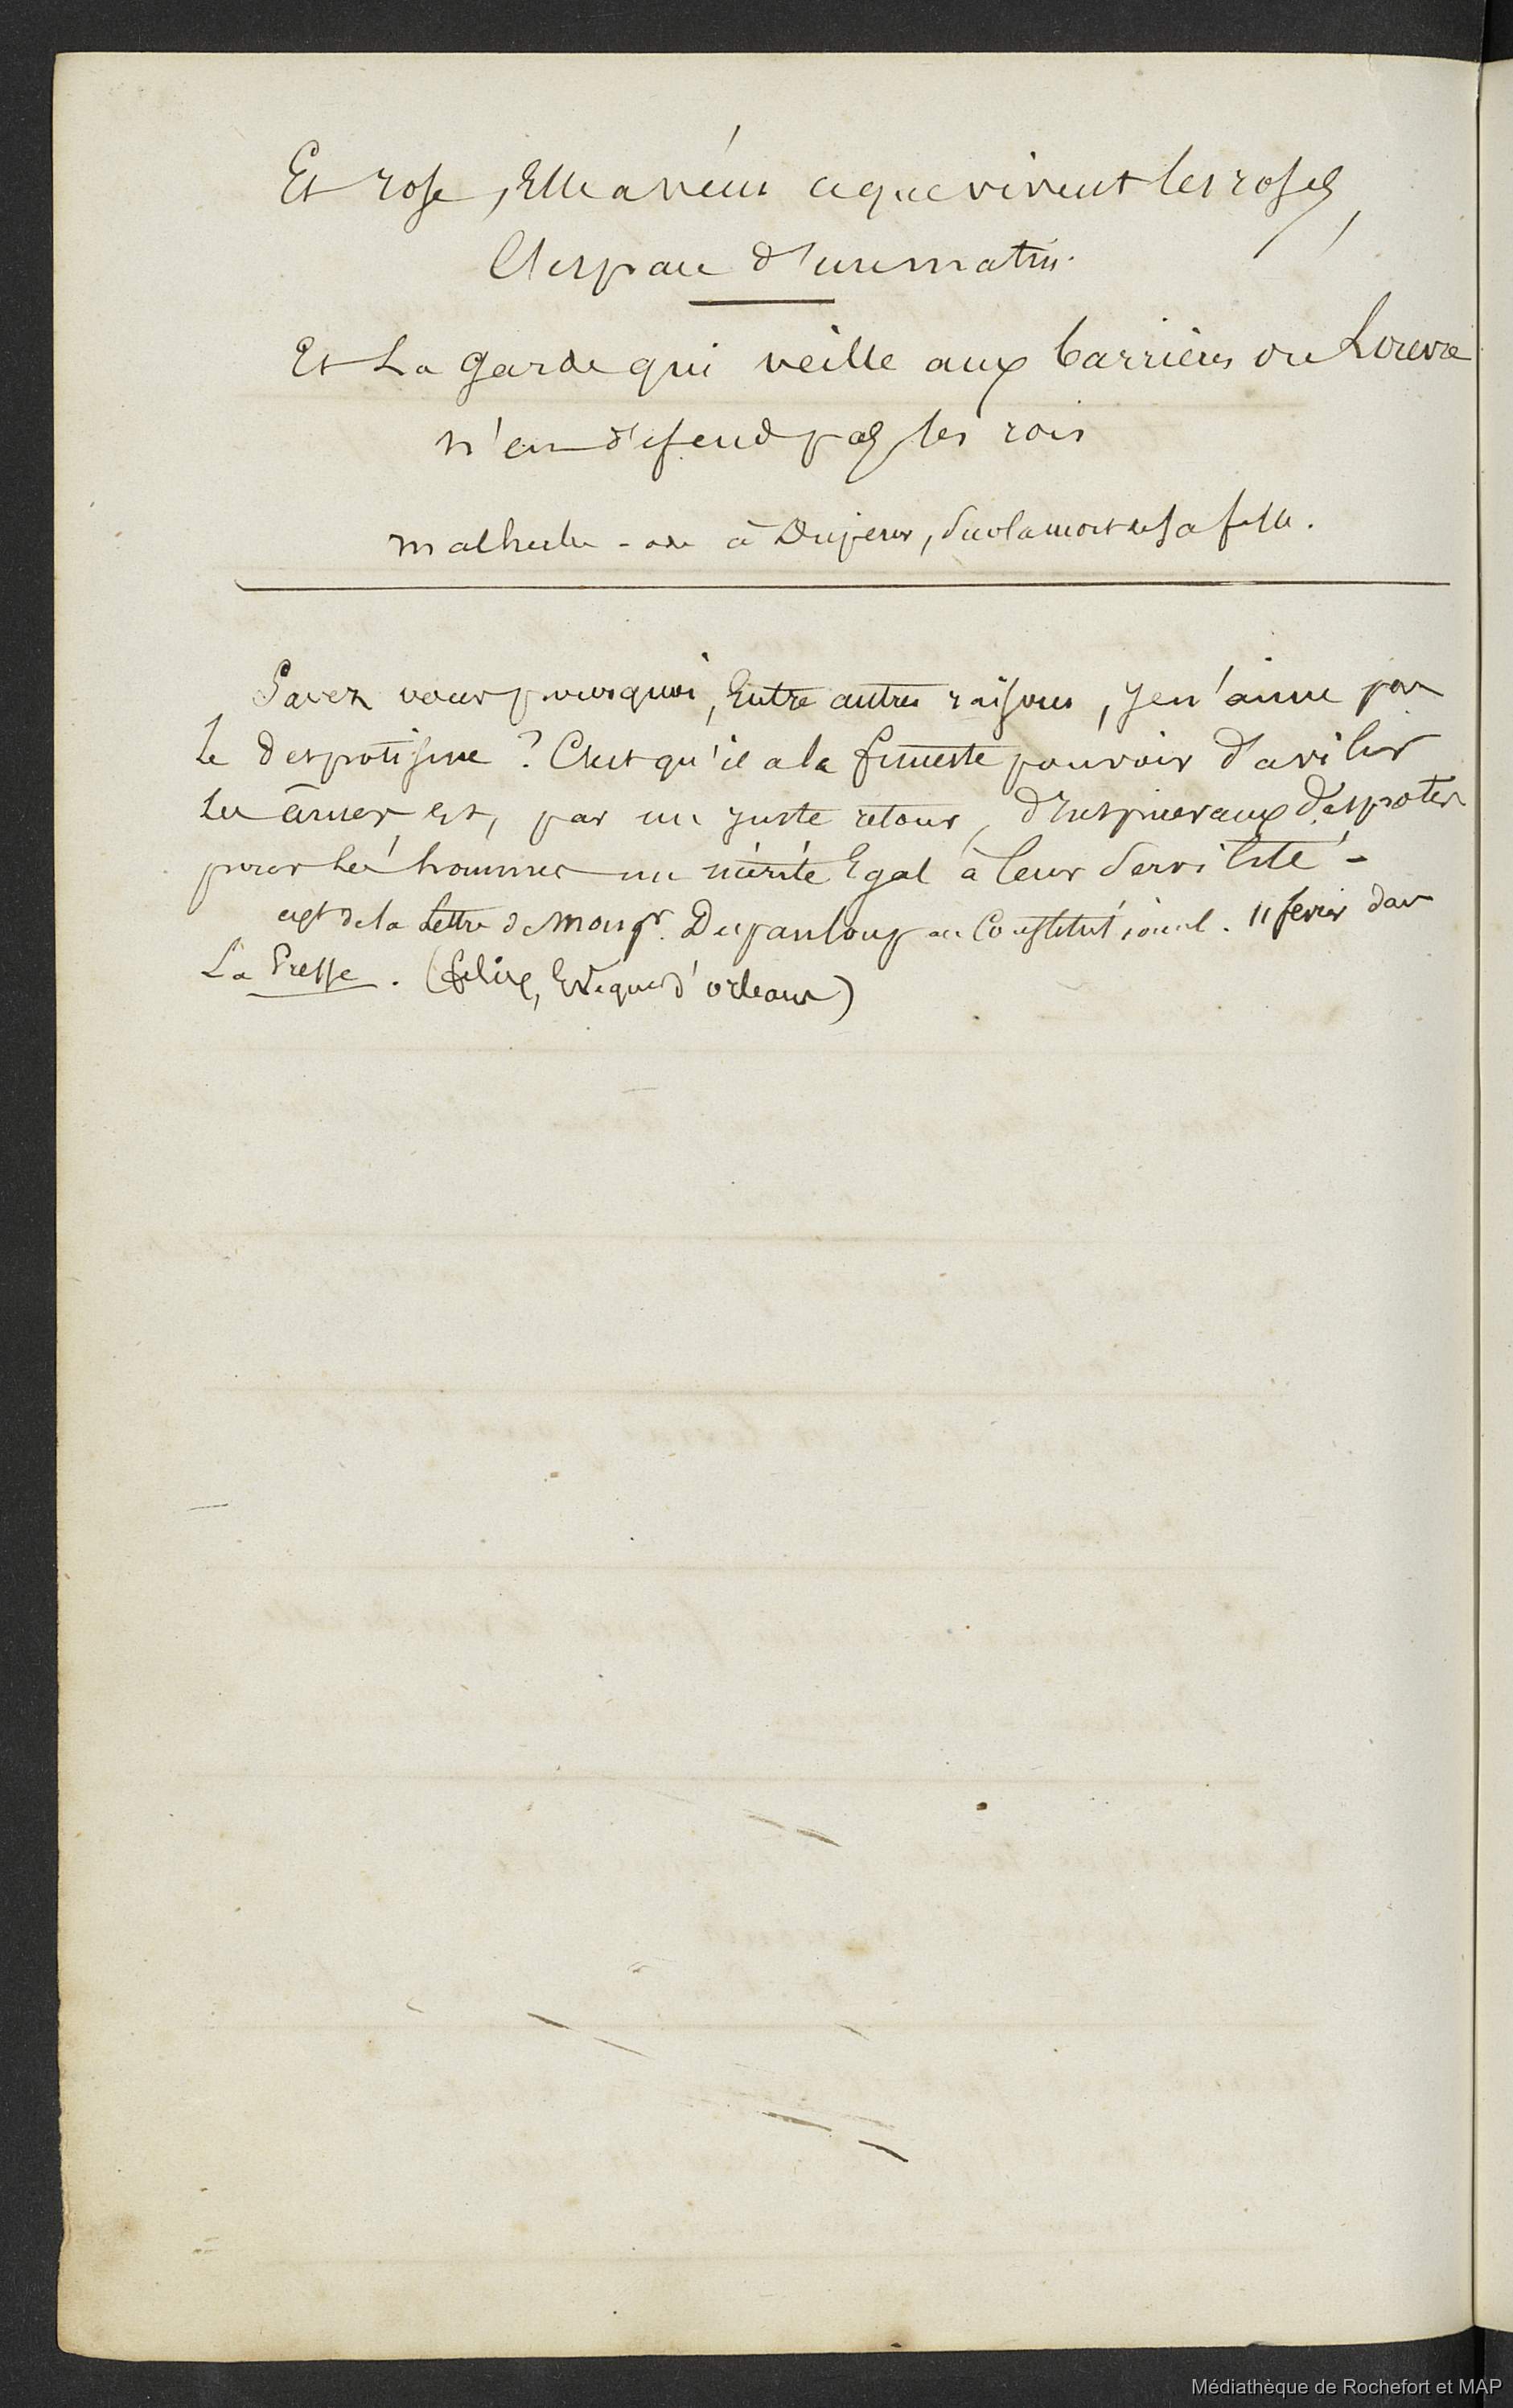 Et rose, Elle a vécu ce que vivent les roses,
L'espace d'un matin.
Et La garde qui veille aux barrières du Louvre
n'en défend pas les rois
malherbe - ode à Duperier, sur la mort de sa fille.
Savez vous pourquoi, Entre autres raisons, Je n'aime pas
le despotisme ? C'est qu'il a le funeste pouvoir d'avilir
les âmes et, par un juste retour, d'Inspirer aux despotes
pour les hommes un mépris Egal à leur servilité -
ext de la Lettre de Monsgr. Dupanloup au Constitutionnel. 11 fevrier dans
La Presse. (félix, Evêque d'orleans)
Médiathèque de Rochefort et MAP